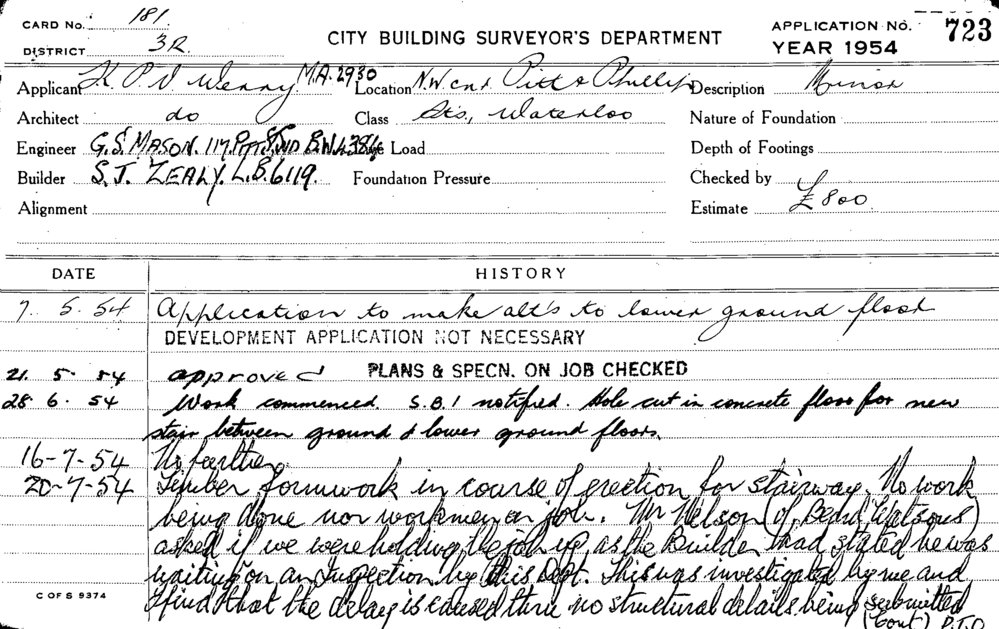 CARD No. 181
DISTRICT 3R.
CITY BUILDING SURVEYOR'S DEPARTMENT
APPLICATION No. 723
YEAR 1954
Applicant K. P. V. M.A. 2930
Location N.W. cnr Pitt & Phillip
Description Minor
Architect do
Class Sts., Waterloo
Nature of Foundation
Engineer G.S. MASON. 117 PITT
Live Load
Depth of Footings
Builder S.J. ZEALY. L.B. 6119.
Foundation Pressure
Checked by
Alignment
Estimate £800
DATE HISTORY
7. 5. 54 Application to make alt's to lower ground floor
DEVELOPMENT APPLICATION NOT NECESSARY
21. 5. 54 approved PLANS & SPECN. ON JOB CHECKED
28. 6. 54 Work commenced. S.B.1 notified. Hole cut in concrete floor for new
stair between ground & lower ground floors.
16-7-54 No further
20-7-54 Timber formwork in course of erection for stairway. No work
being done nor workmen on job. Mr Nelson (of Beard Watsons)
asked if we were holding the job up, as the Builder had stated he was
waiting on an Inspection by this Dept. This was investigated by me and
I find that the delay is caused thru no structural details being submitted
C OF S 9374
(Cont) P.T.O